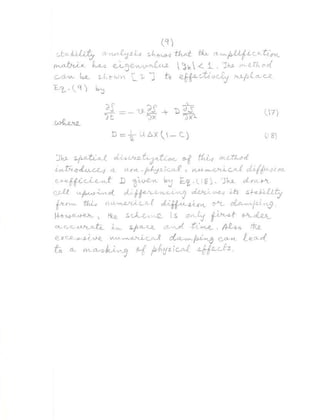 (9)
stability analysis shows that the amplification
matrix has eigenvalue |g_k| < 1. The method
can be shown [ 2 ] to effectively replace
Eq. (9) by
∂ρ/∂t = - u ∂ρ/∂x + D ∂²ρ/∂x² (17)
where
D = ½ u Δx (1 - C) (18)
The spatial discretization of this method
introduces a non-physical, numerical diffusion
coefficient D given by Eq. (18). The donor
cell upwind differencing derives its stability
from this numerical diffusion or damping.
However, the scheme is only first order
accurate in space and time. Also the
excessive numerical damping can lead
to a masking of physical effects.